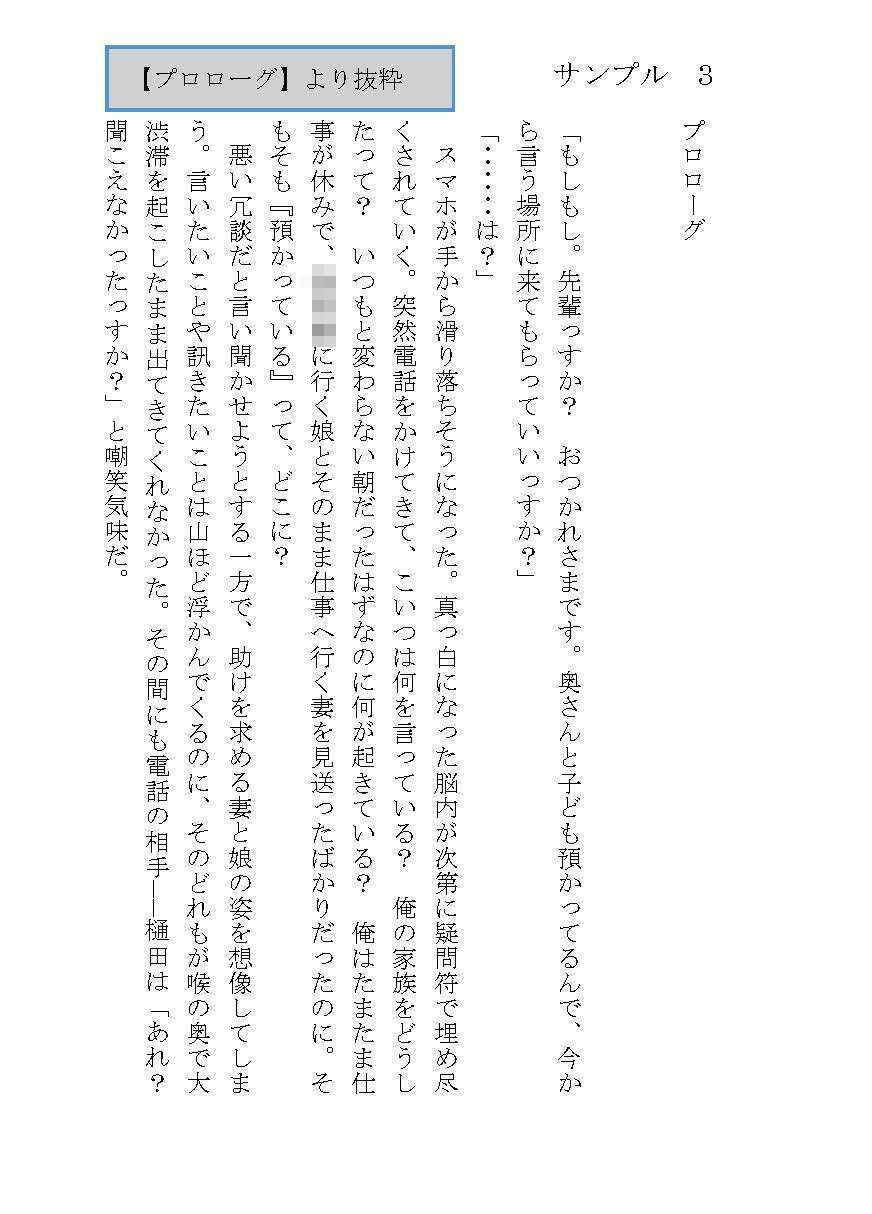 サンプル　3
【プロローグ】より抜粋
プロローグ
「もしもし。先輩っすか？　おつかれさまです。奥さんと子ども預かってるんで、今か
ら言う場所に来てもらっていいっすか？」
「・・・・・は？」
　スマホが手から滑り落ちそうになった。真っ白になった脳内が次第に疑問符で埋め尽
くされていく。突然電話をかけてきて、こいつは何を言っている？　俺の家族をどうし
たって？　いつもと変わらない朝だったはずなのに何が起きている？　俺はたまたま仕
事が休みで、に行く娘とそのまま仕事へ行く妻を見送ったばかりだったのに。そ
もそも『預かっている』って、どこに？
　悪い冗談だと言い聞かせようとする一方で、助けを求める妻と娘の姿を想像してしま
う。言いたいことや訊きたいことは山ほど浮かんでくるのに、そのどれもが喉の奥で大
渋滞を起こしたまま出てきてくれなかった。その間にも電話の相手――樋田は「あれ？
聞こえなかったっすか？」と嘲笑気味だ。